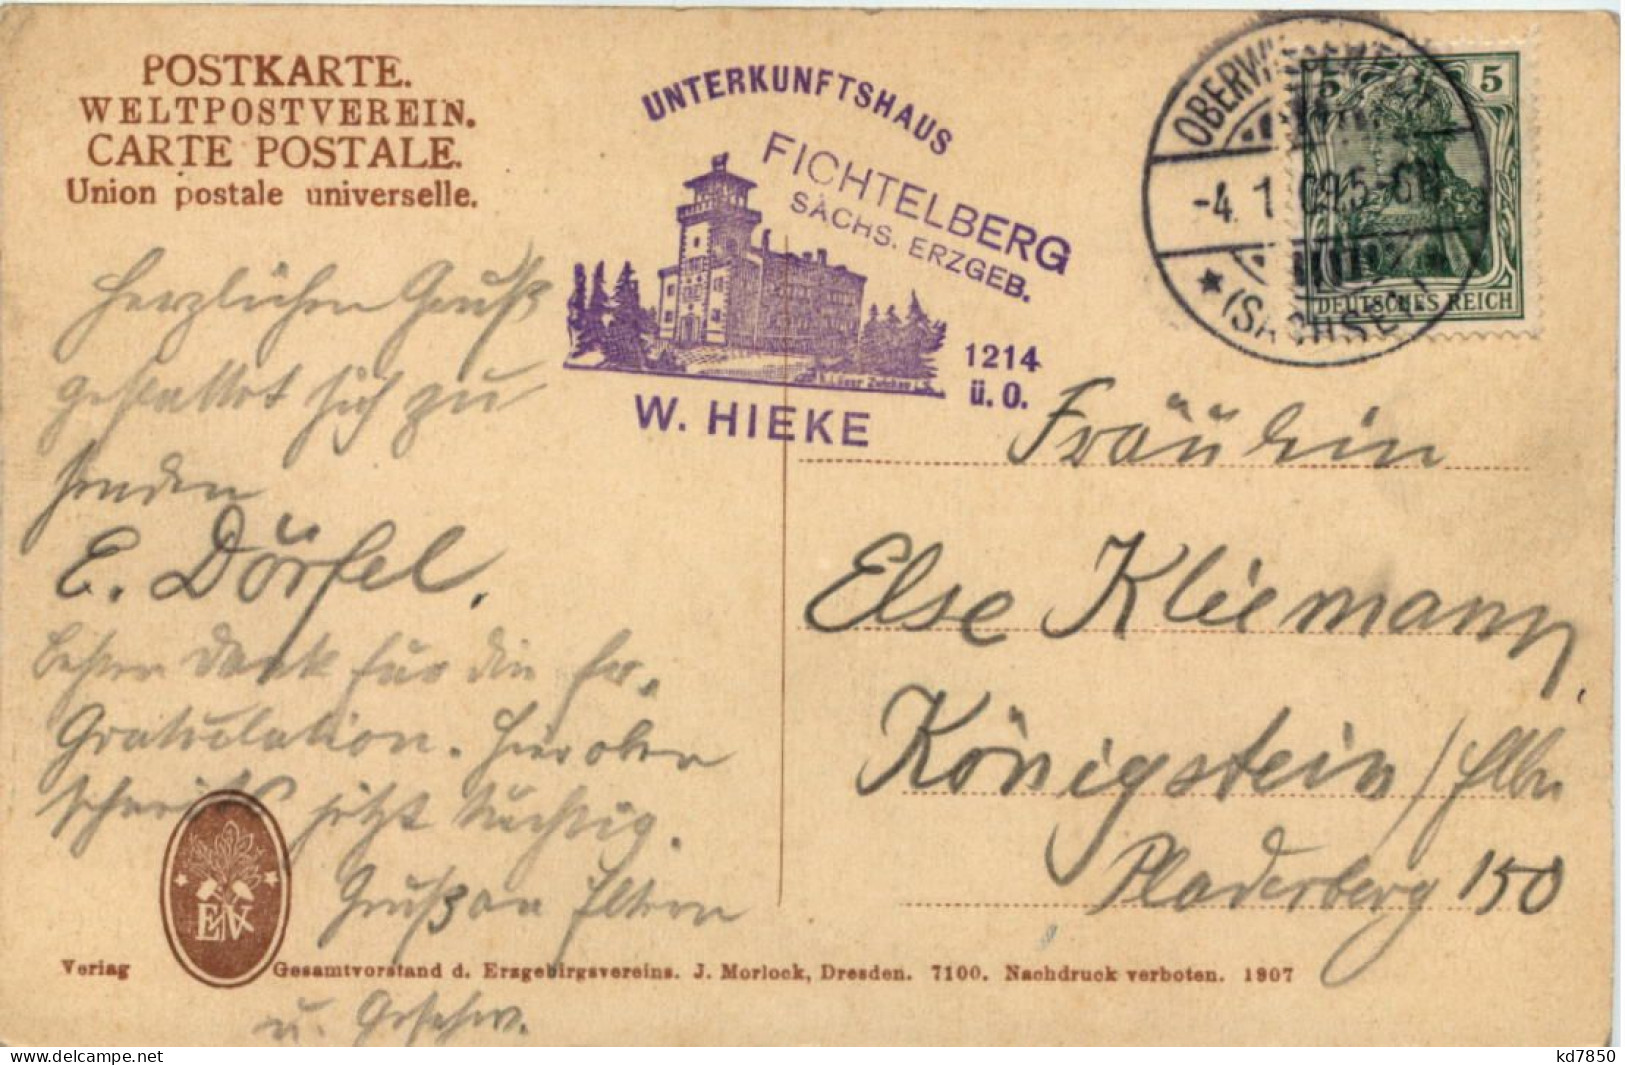 POSTKARTE.
WELTPOSTVEREIN.
CARTE POSTALE.
Union postale universelle.
UNTERKUNFTSHAUS
FICHTELBERG
SÄCHS. ERZGEB.
1214
ü. O.
W. HIEKE
OBERWIESENTHAL
-4. 1. 09. 5-6N
(SACHSEN)
5 5
DEUTSCHES REICH
Herzlichen Gruß
gestattet sich zu
senden
E. Dörfel.
Besten Dank für die
Gratulation. Hier oben
schneit's jetzt tüchtig.
Gruß an Eltern
u. Geschw.
Fräulein
Else Kliemann,
Königstein / Elbe
Pladerberg 150
EV
Verlag Gesamtvorstand d. Erzgebirgsvereins. J. Morlock, Dresden. 7100. Nachdruck verboten. 1907
kd7850